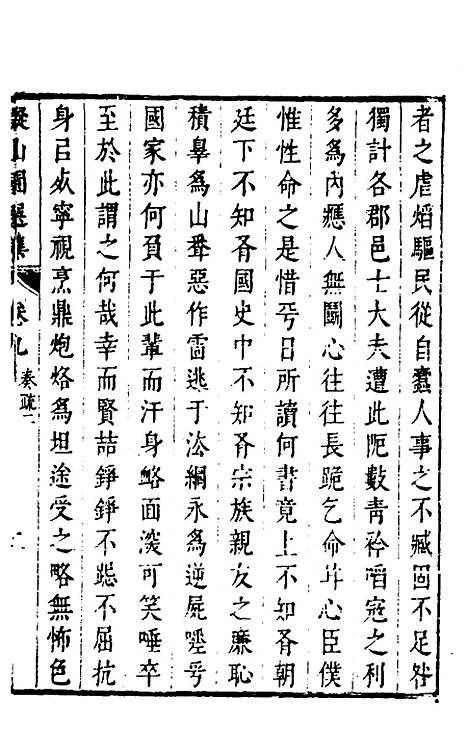 者之虐熖驅民從自蠧人事之不臧固不足咎
獨計各郡邑士大夫遭此阨數靑衿㗖寇之利
多爲內應人無鬬心往往長跪乞命甘心臣僕
惟性命之是惜平日所讀何書竟上不知有朝
廷下不知有國史中不知有宗族親友之廉恥
積辠爲山聱惡作雷逃于法網永爲逆屍嗟乎
國家亦何負于此輩而汗身略面深可笑唾卒
至於此謂之何哉幸而賢喆錚錚不跽不屈抗
身已处寧視烹鼎炮烙爲坦途受之略無怖色
擬山園選集
卷九
奏疏二
二